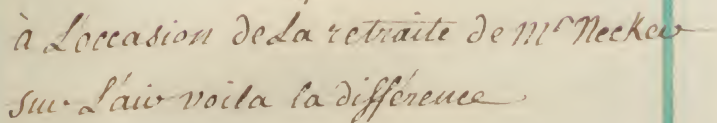 à L'occasion de La retraite de Mr Necker
sur L'air voila la différence